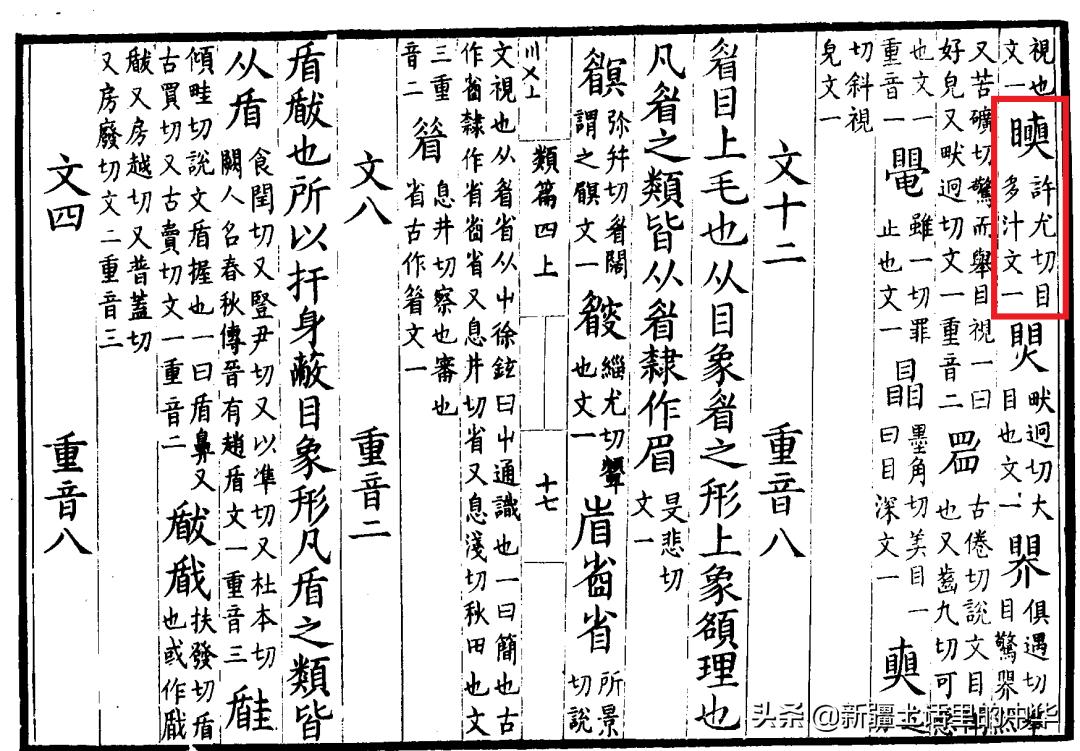 視也
文一
許尤切目
多汁文一
畎迥切大
目也文一
俱遇切舉
目驚
又苦礦切驚而舉目視一曰
好皃又畎迥切文一重音二
古倦切說文目
也又齒九切可
也文一
重音一
雖一切罪
止也文一
墨角切美目一
曰目深文一
奭
切斜視
皃文一
文十二 重音八
眉目上毛也从目象眉之形上象頟理也
凡眉之類皆从眉隸作眉 旻悲切
文一
弥幷切眉闊
謂之 文一
緇尤切顰
也文一
省 所景
切說
類篇四上 十七
文視也从眉省从屮徐鉉曰屮通識也一曰簡也古
作 隸作省 省又息井切省又息淺切秋田也文
三重
音二
息井切察也審也
省古作 文一
文八 重音二
盾瞂也所以扞身蔽目象形凡盾之類皆
从盾 食閏切又豎尹切又以準切又杜本切
闕人名春秋傳晉有趙盾文一重音三
傾畦切說文盾握也一曰盾鼻又
古買切又古賣切文一重音二
瞂 扶發切盾
也或作
瞂又房越切又普蓋切
又房廢切文二重音三
文四 重音八
头条 @新疆土话里的中华